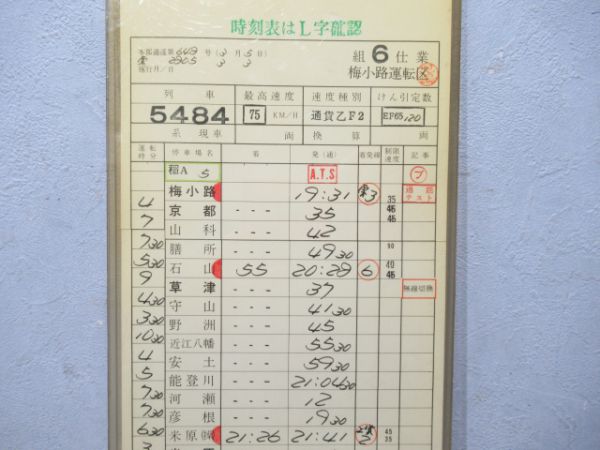 時刻表はL字確認
組 6 仕業
梅小路運転区
列車 最高速度 速度種別 けん引定数
5484 75 KM/H 通貨乙F2 EF65 120
系 現車 両 換算 両
運転時分 停車場名 着 発(通) 着発線 制限速度 記事
稲A 5 A.T.S プ
梅小路 19:31 3 35 通話テスト
4 京都 --- 35 45 45
7 山科 --- 42
730 膳所 --- 4930 90
530 石山 55 20:28 6 40 45
9 草津 --- 37 無線切換
430 守山 --- 4130
330 野洲 --- 45
1030 近江八幡 --- 5530
4 安土 --- 5930
5 能登川 --- 21:0430
730 河瀬 --- 12
730 彦根 --- 1930
630 米原 21:26 21:41 2 45 35
3